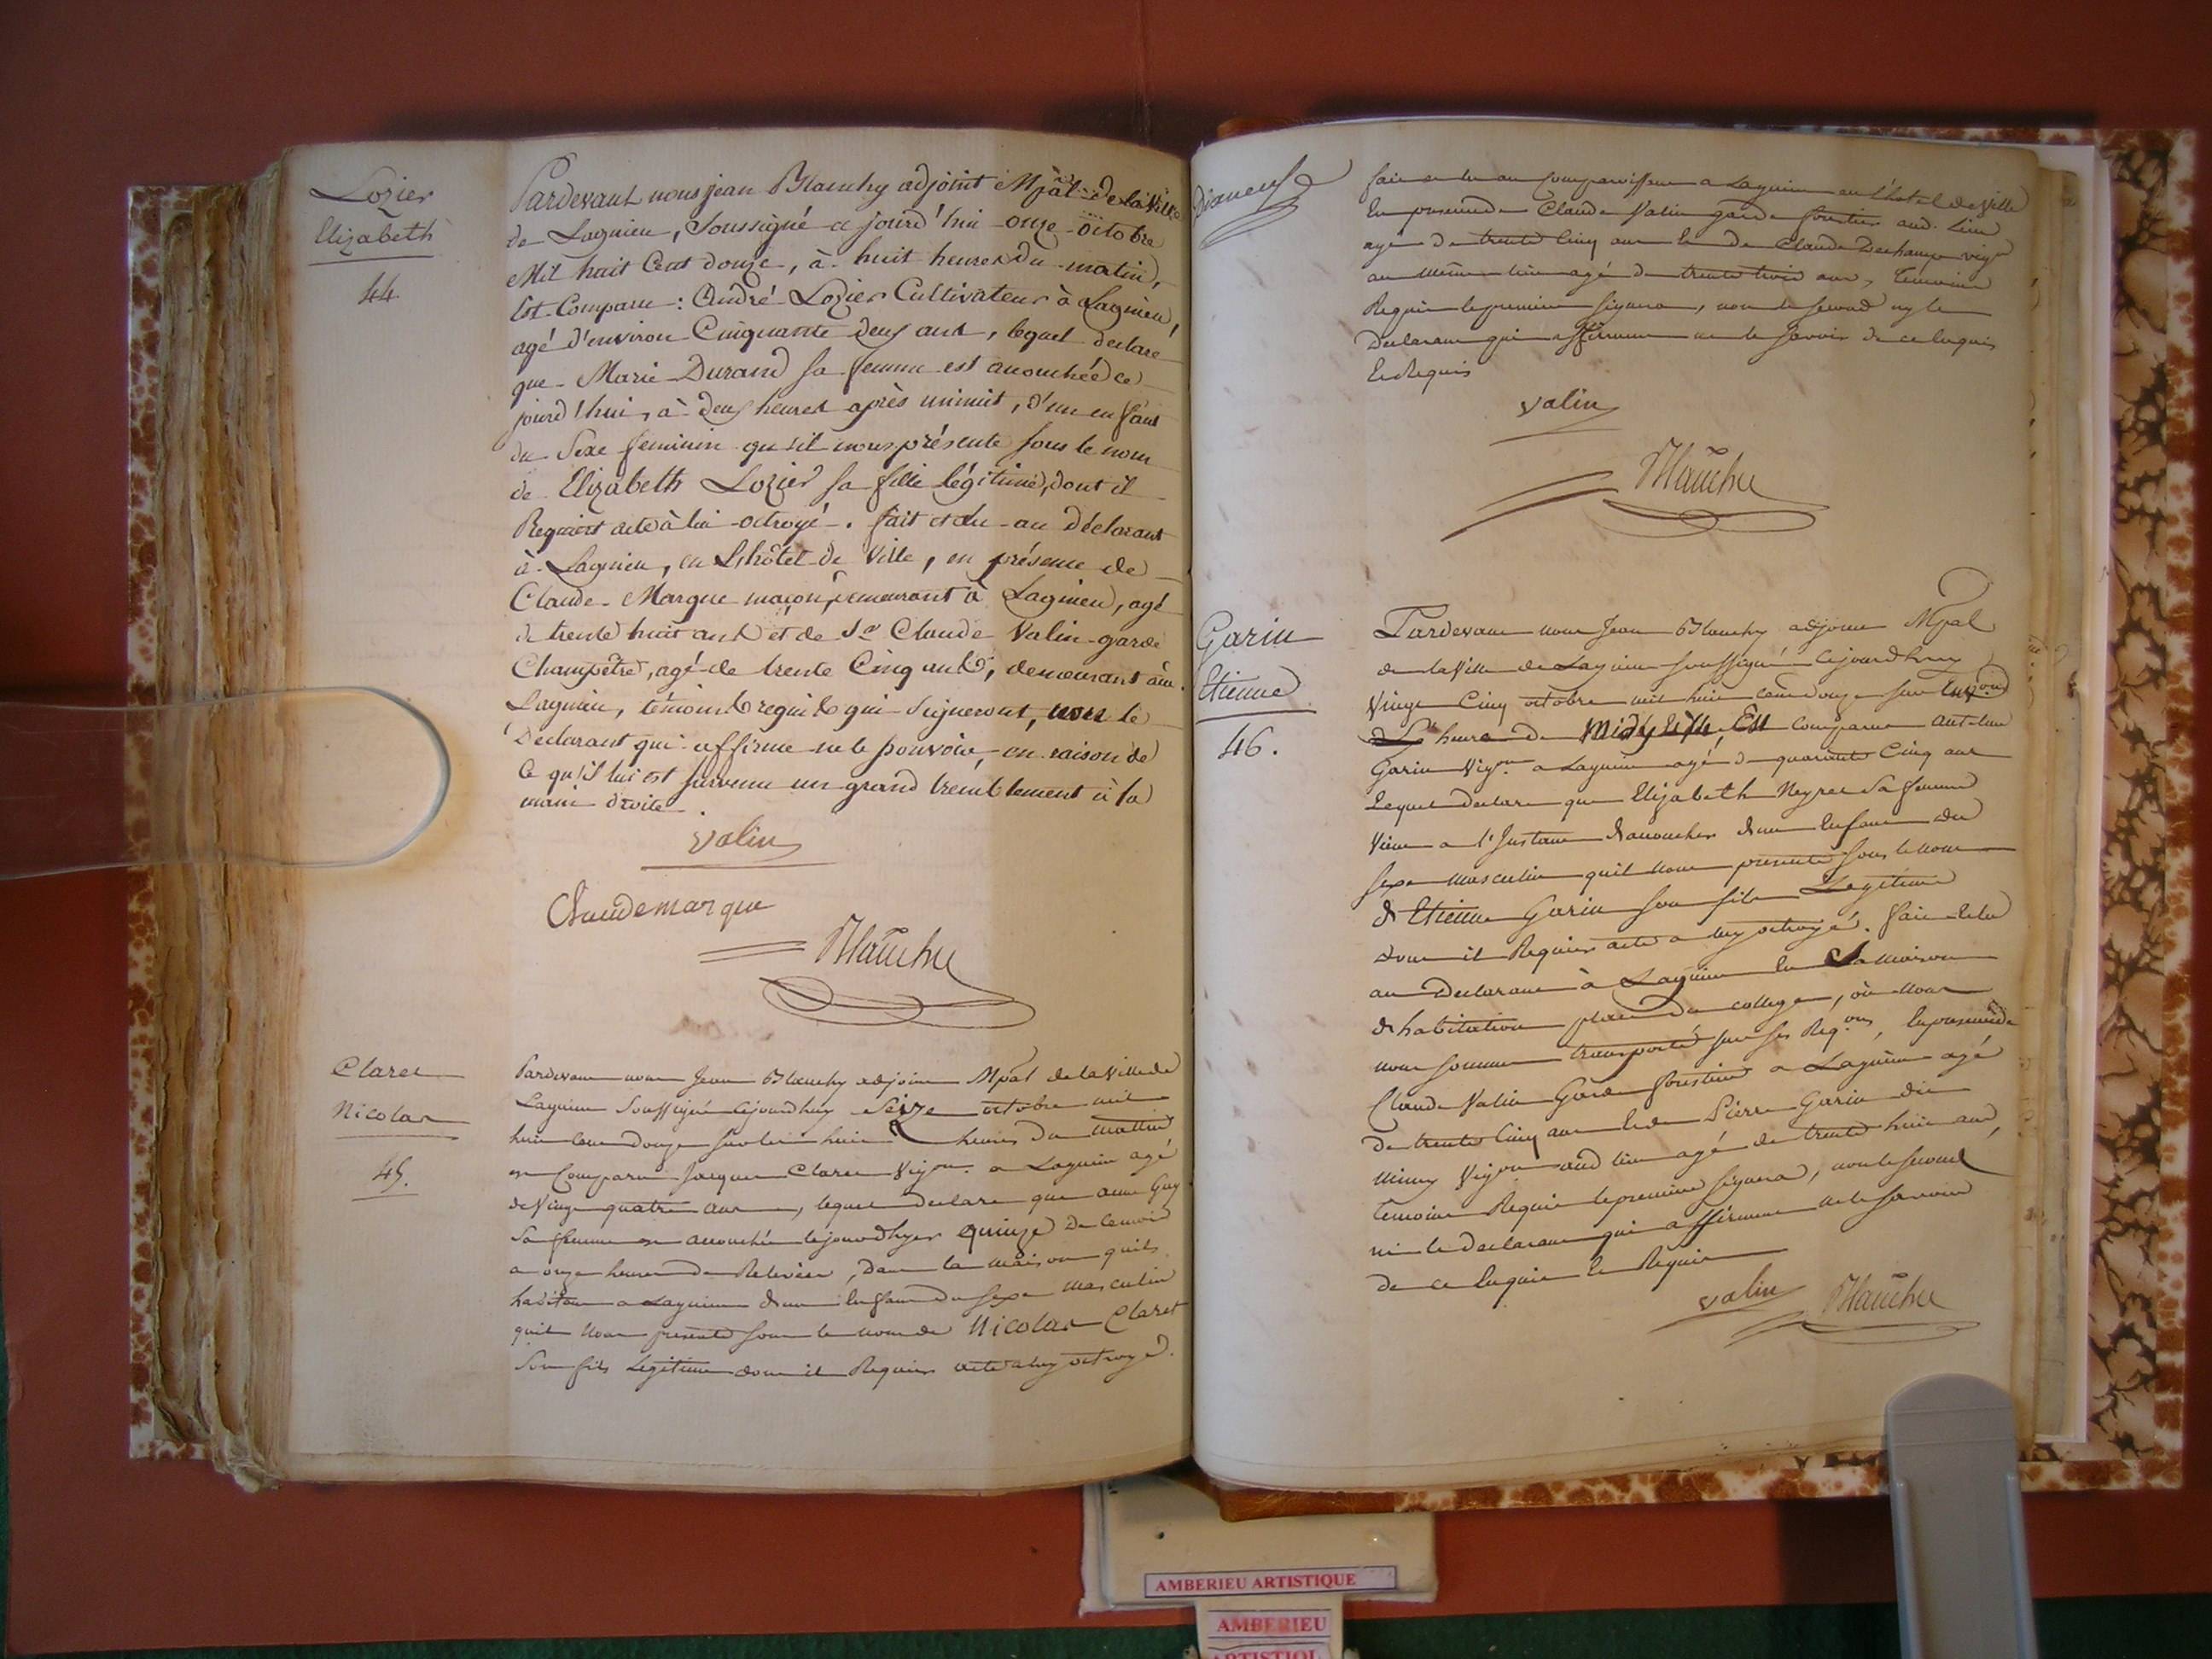 Lozier
Elizabeth
44
Pardevant nous jean Blanchy adjoint Mpâl de la Ville
de Lagnieu, Soussigné ce jourd'hui onze octobre
Mil huit Cent douze, à huit heures du matin,
Est Comparu : André Lozier Cultivateur à Lagnieu,
agé d'environ Cinquante deux ans, lequel declare
que Marie Durand sa femme est accouchée ce
jourd'hui, à deux heures après minuit, d'un enfant
du Sexe feminin qu'il nous présente sous le nom
de Elizabeth Lozier sa fille légitime, dont il
Requiert acte à lui octroyé. fait et lu au Déclarant
à Lagnieu, en L'hôtel de Ville, en présence de
Claude Marque maçon, demeurant à Lagnieu, agé
de trente huit ans et de Sr Claude Valin garde
Champêtre, agé de trente Cinq ans, demeurant au
Lagnieu, témoins requis qui Signeront, non le
Déclarant qui affirme ne le pouvoir, en raison de
Ce qu'il lui est survenu un grand tremblement à la
main droite.
Valin
Claude marque
Blanchy
Claret
Nicolas
45.
Pardevant nous Jean Blanchy adjoint Mpal de la Ville de
Lagnieu Soussigné cejourdhuy Seize octobre mil
huit cent douze sur les huit heures du mattin
est Comparu Jacques Claret Vigon a Lagnieu agé
de Vingt quatre ans, lequel declare que anne Guy
Sa femme est accouchée le jourdhyer quinze de ce mois
a onze heures de Relevée, dans la maison quils
habitent a Lagnieu d'un Enfant du sexe masculin
quil Nous presente sous le nom de Nicolas Claret
Son fils Legitime dont il Requier acte a luy octroyé.
fait et lu au Comparoissant a Lagnieu en l'hotel de Ville
En presence de Claude Valin garde forestier aud. Lieu
agé de trente Cinq ans et de Claude Dechamp vign
au même lieu agé de trente trois ans, temoins
Requis le premier signera, non le second ny le
Declarant qui afferment ne le savoir de ce Enquis
Et Requis
Valin
Blanchy
Garin
Etienne
46.
Pardevant nous Jean Blanchy adjoint Mpal
de la Ville de Lagnieu soussigné cejourdhuy
Vingt Cinq octobre mil huit cent douze sur
heure de Midy Est comparu antelme
Garin Vigon a Lagnieu agé de quarante Cinq ans
Lequel declare que Elizabeth Neyret Sa femme
Vient a l'Instant d'accoucher d'un Enfant du
sexe masculin quil nous presente sous le nom
d'Etienne Garin son fils Legitime
dont il Requier acte a luy octroyé. fait et lu
au Declarant à Lagnieu En Sa maison
d'habitation place du college, où Nous
nous sommes transporté sur ses Reqons, En presence de
Claude Valin Garde forestier a Lagnieu agé
de trente Cinq ans et de Pierre Garin dit
Vigon aud lieu agé de trente huit ans,
temoins Requis le premier signera, non le second
ni le declarant qui affirment ne le savoir
de ce Enquis Et Requis
Valin Blanchy
AMBERIEU ARTISTIQUE
AMBERIEU
ARTISTIQU